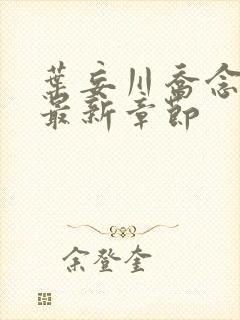 葉妄川喬念
最新章節
余登奎